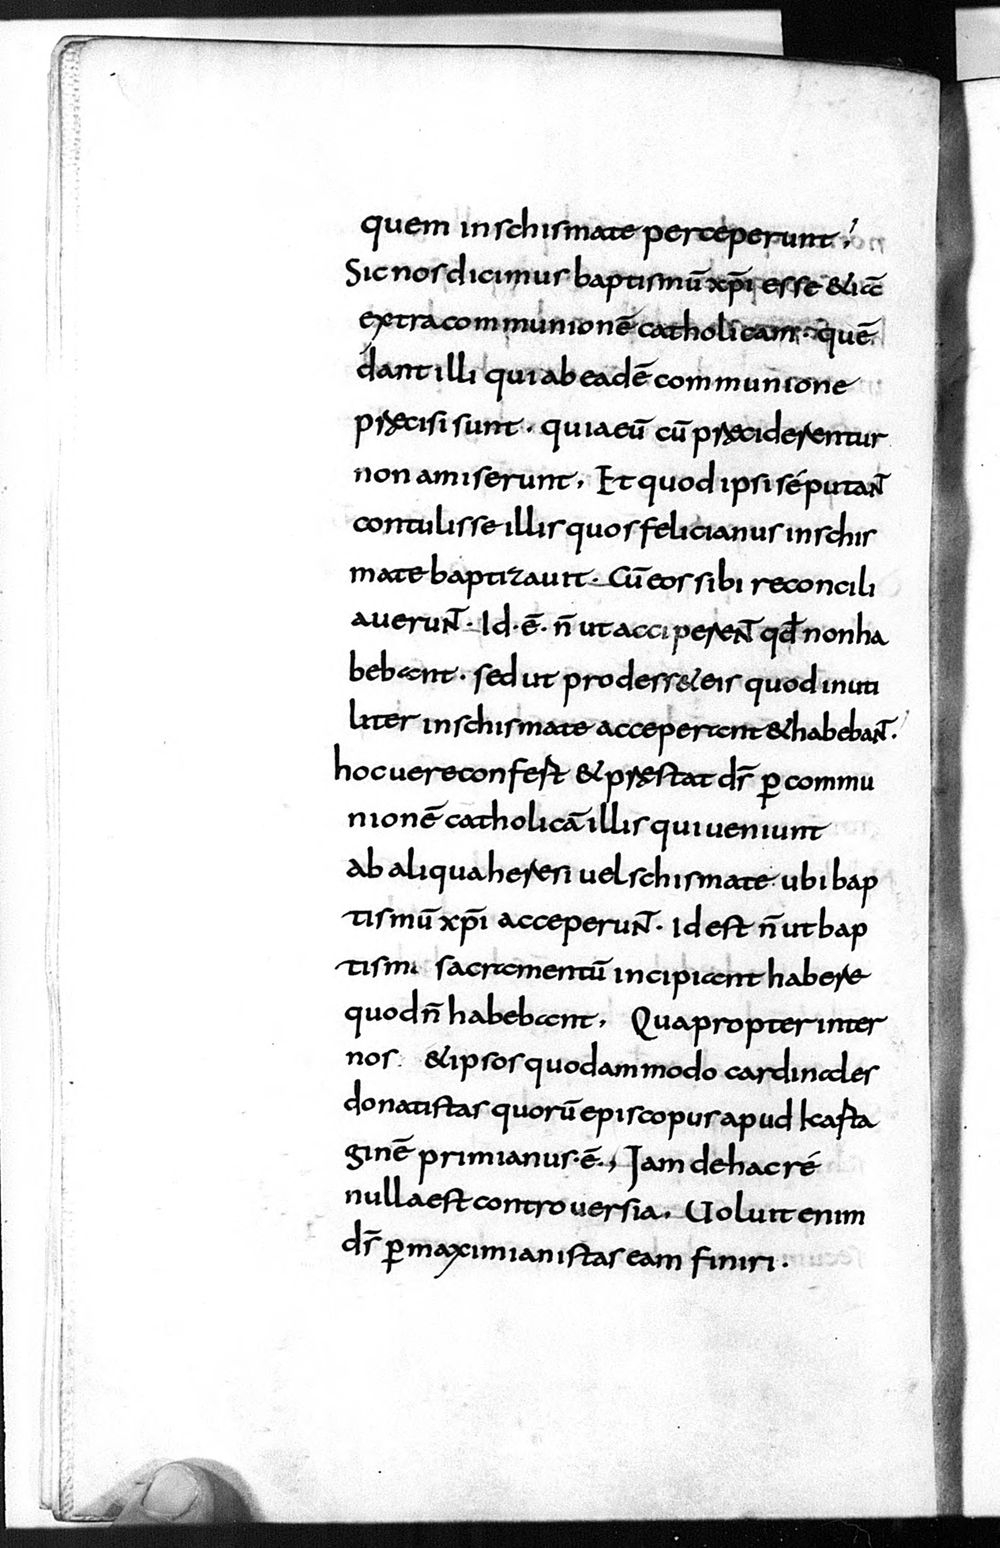 quem inschismate perceperunt.
Sic nos dicimus baptismū xp̄i esse &iā
extra communionē catholicam. quē
dant illi qui ab eadē communione
pręcisi sunt. quia eū cū pręciderentur
non amiserunt. Et quod ipsi sé putant
contulisse illis quos felicianus inschis
mate baptizauit. Cū eos sibi reconcili
auerunt. Id. ē. n̄ ut acciperent qd̄ non ha
bebant. sed ut prodess& eis quod inuti
liter inschismate acceperant & habebant.
hoc uere confert & pręstat dr̄ ꝑ commu
nionē catholicā illis qui ueniunt
ab aliqua heresi uel schismate ubi bap
tismū xp̄i acceperunt. Id est n̄ ut bap
tismi sacramentū incipiant habere
quod n̄ habebant. Quapropter inter
nos & ipsos quodammodo cardinales
donatistas quorū episcopus apud karta
ginē primianus. ē., Iam de hac ré
nulla est controuersia. Uoluit enim
dr̄ ꝑ maximianistas eam finiri.